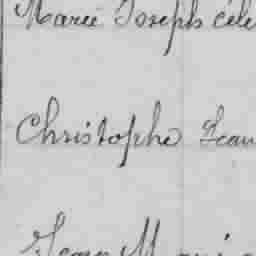 Marie Joseph céle
Christophe Jean
Jean M